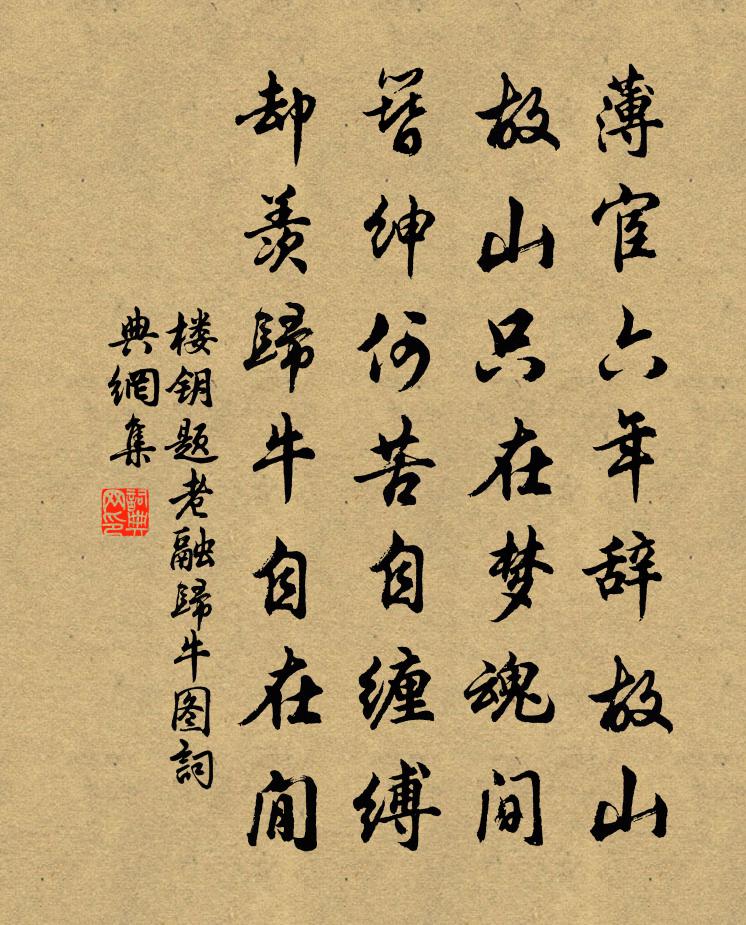 薄宦六年辞故山
故山只在梦魂间
簪绅何苦自缠缚
却羡歸牛自在閒
楼钥题老融歸牛图詞
典網集
詞典
网印